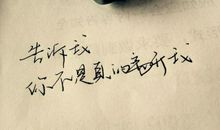 告诉我
你不是真的离开我